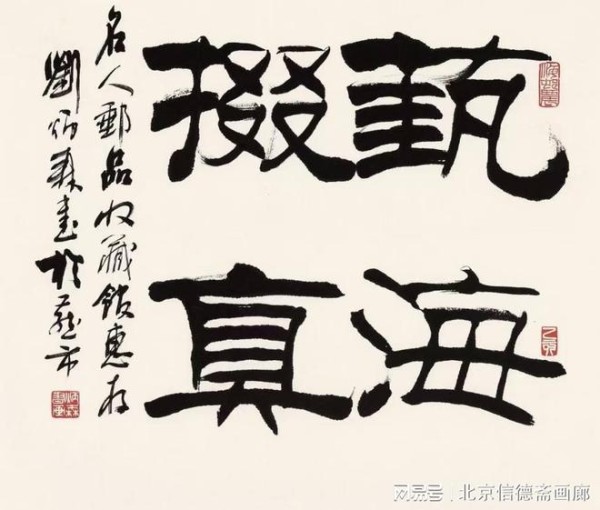 埶海
掇真
名人郵品收藏館惠存
劉炳森書於燕市
搜狐号@北京信德斋画廊